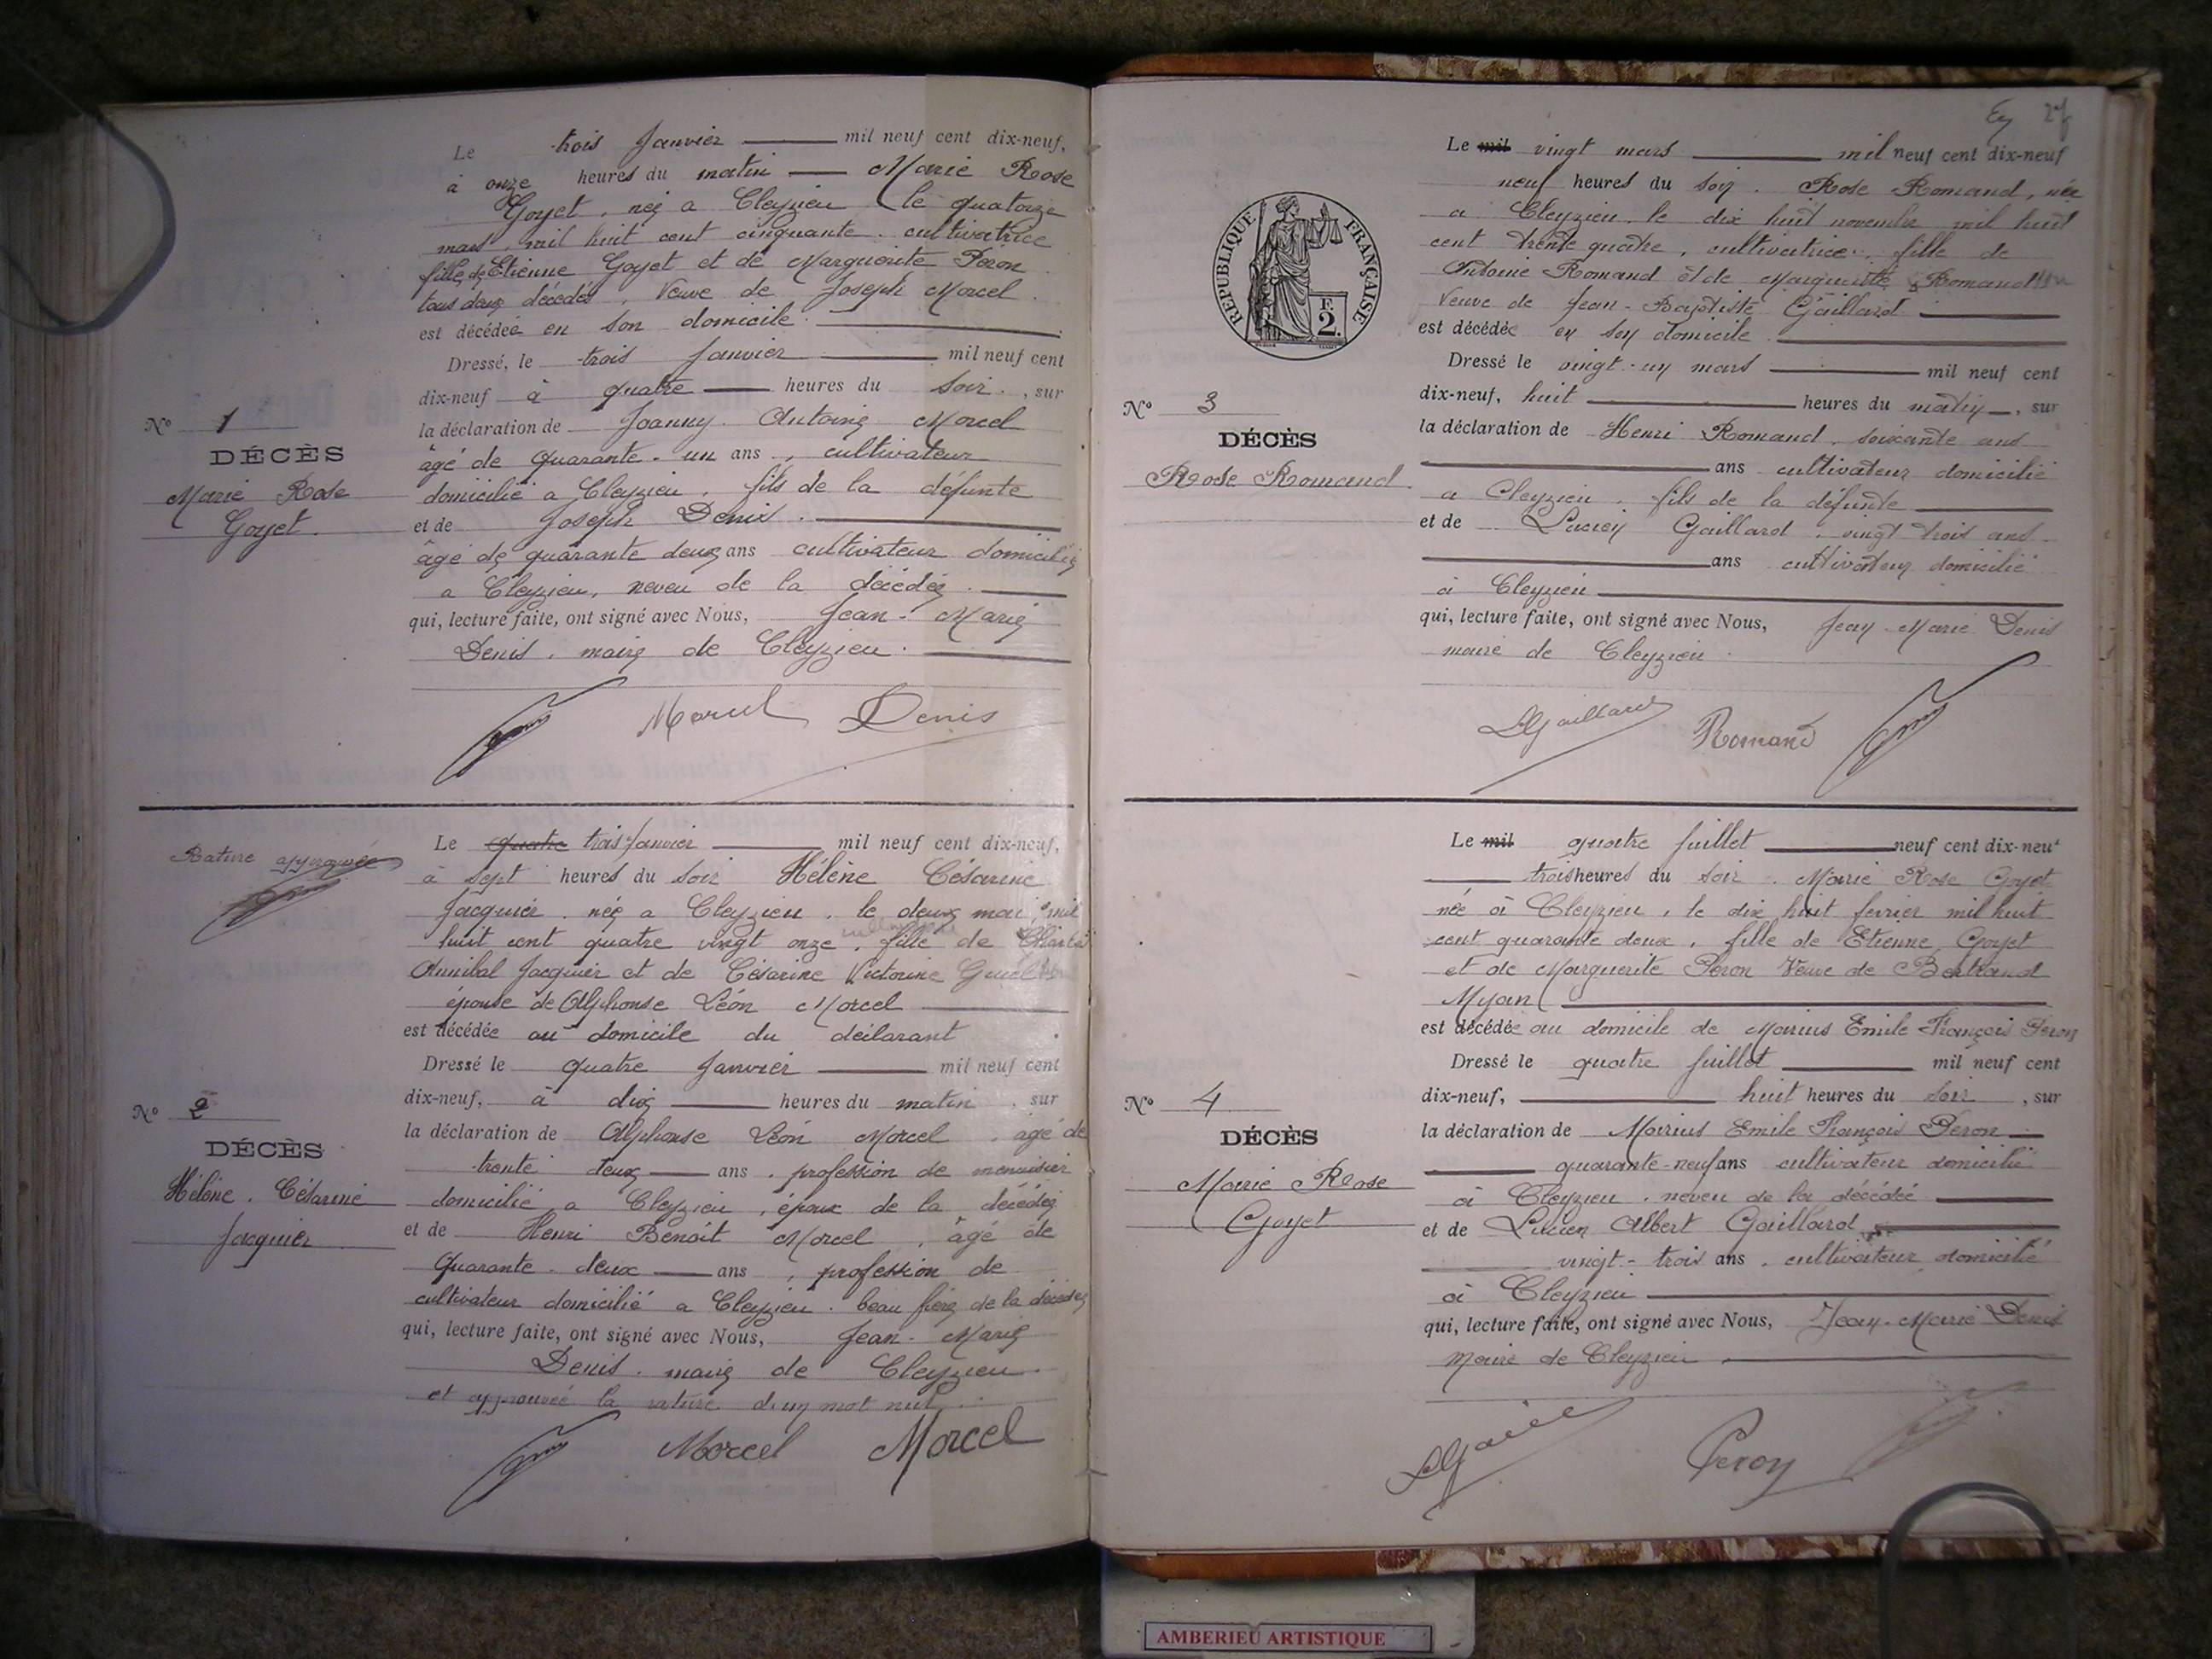 Le trois Janvier mil neuf cent dix-neuf,
à onze heures du matin Marie Rose
Goyet, née a Cleyzieu le quatorze
mars, mil huit cent cinquante, cultivatrice
fille de Etienne Goyet et de Marguerite Peron
tous deux décédés, Veuve de Joseph Morcel.
est décédée en son domicile.
Dressé, le trois Janvier mil neuf cent
dix-neuf à quatre heures du soir, sur
la déclaration de Joanny Antoine Morcel
âgé de quarante-un ans, cultivateur
domicilié a Cleyzieu, fils de la défunte
et de Joseph Denis.
âgé de quarante deux ans cultivateur domicilié
a Cleyzieu, neveu de la décédée.
qui, lecture faite, ont signé avec Nous, Jean-Marie
Denis, maire de Cleyzieu.
Morcel Denis
N° 1
DÉCÈS
Marie Rose
Goyet.
Rature approuvée
Le quatre trois Janvier mil neuf cent dix-neuf,
à sept heures du soir Hélène Césarine
Jacquier, née a Cleyzieu, le deux mai, mil
huit cent quatre vingt onze, fille de Charles
Annibal Jacquier et de Césarine Victorine
épouse de Alphonse Léon Morcel
est décédée au domicile du déclarant
Dressé le quatre Janvier mil neuf cent
dix-neuf, à dix heures du matin, sur
la déclaration de Alphonse Léon Morcel, âgé de
trente deux ans, profession de menuisier
domicilié a Cleyzieu, époux de la décédée
et de Henri Benoit Morcel, âgé de
quarante-deux ans, profession de
cultivateur domicilié a Cleyzieu, beau frère de la décédée
qui, lecture faite, ont signé avec Nous, Jean-Marie
Denis, maire de Cleyzieu.
et approuvée la rature d'un mot nul.
Morcel Morcel
N° 2
DÉCÈS
Hélène Césarine
Jacquier
RÉPUBLIQUE FRANÇAISE
F.
2.
Le mil vingt mars mil neuf cent dix-neuf
neuf heures du soir. Rose Romand, née
a Cleyzieu, le dix huit novembre mil huit
cent trente quatre, cultivatrice, fille de
Antoine Romand et de Marguerite Romand
Veuve de Jean-Baptiste Gaillard
est décédée en son domicile
Dressé le vingt-un mars mil neuf cent
dix-neuf, huit heures du matin, sur
la déclaration de Henri Romand, soixante ans
ans cultivateur domicilié
a Cleyzieu, fils de la défunte
et de Lucien Gaillard, vingt trois ans
ans cultivateur domicilié
à Cleyzieu
qui, lecture faite, ont signé avec Nous, Jean-Marie Denis
maire de Cleyzieu.
LGaillard Romand
N° 3
DÉCÈS
Rose Romand.
Le mil quatre Juillet neuf cent dix-neuf
trois heures du soir. Marie Rose Goyet
née à Cleyzieu, le dix huit fevrier mil huit
cent quarante deux, fille de Etienne Goyet
et de Marguerite Peron Veuve de Bertrand
Myan
est décédée au domicile de Marius Emile François Peron
Dressé le quatre Juillet mil neuf cent
dix-neuf, huit heures du soir, sur
la déclaration de Marius Emile François Peron
quarante-neuf ans cultivateur domicilié
à Cleyzieu, neveu de la décédée
et de Lucien Albert Gaillard
vingt-trois ans, cultivateur domicilié
à Cleyzieu
qui, lecture faite, ont signé avec Nous, Jean-Marie Denis
Maire de Cleyzieu.
Peron
N° 4
DÉCÈS
Marie Rose
Goyet
AMBERIEU ARTISTIQUE